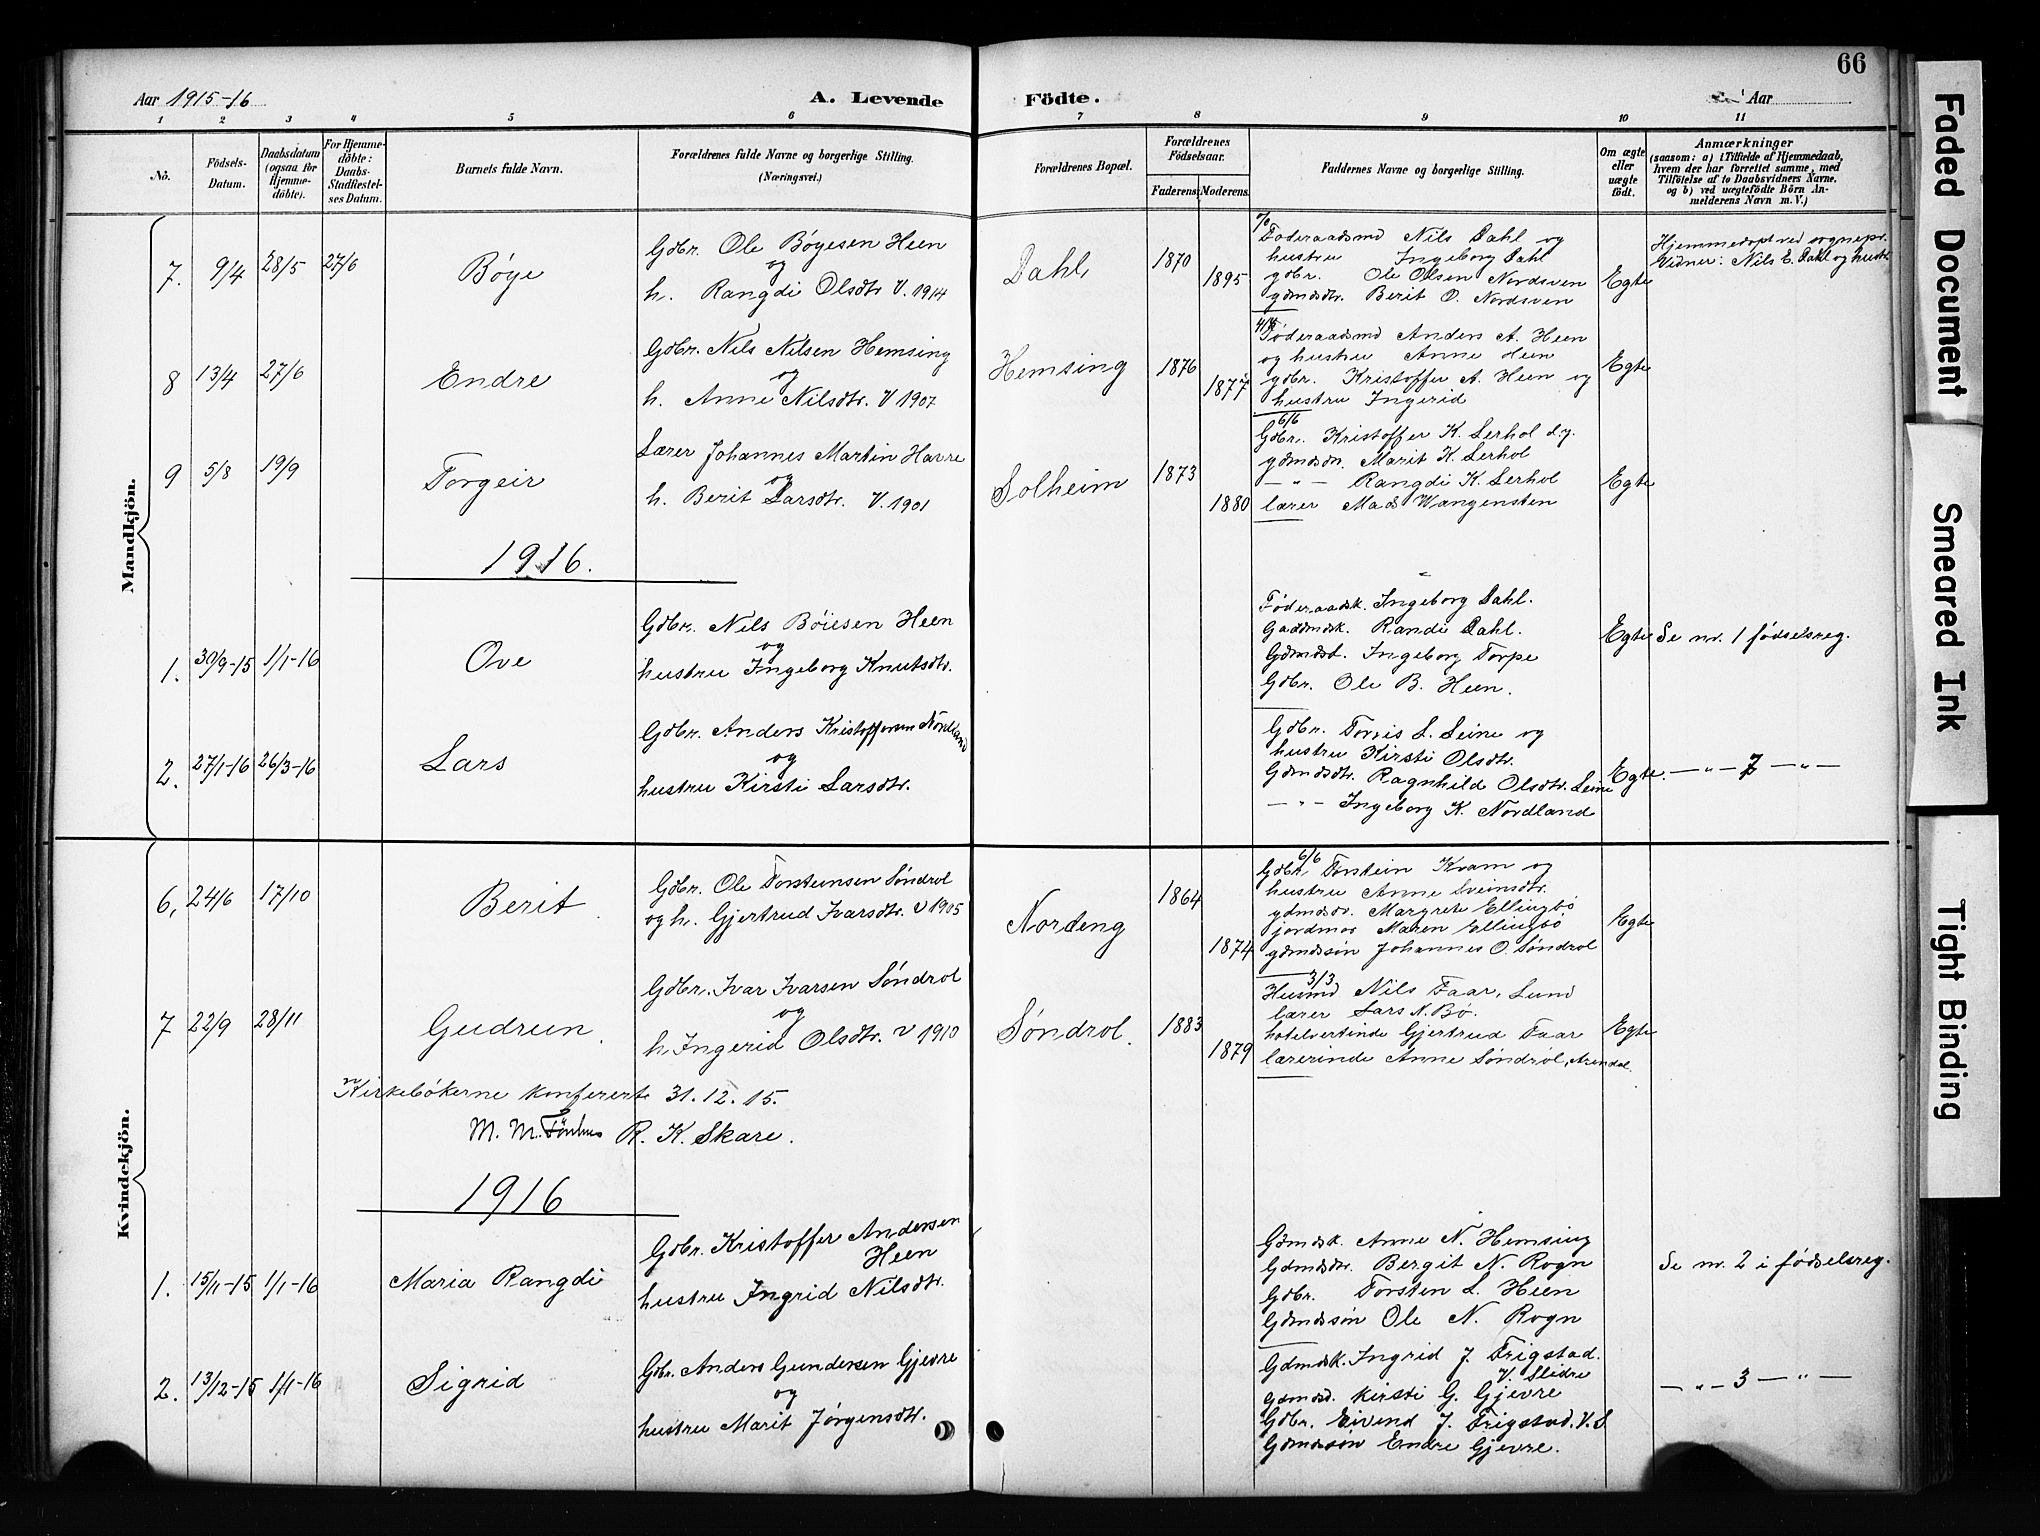 66
Aar 1915-16
A. Levende
Födte.
Aar
1 2 3 4 5 6 7 8 9 10 11
No.
Födsels-Datum.
Daabsdatum (ogsaa for Hjemmedöbte).
For Hjemmedöbte: Daabs-Stadfæstelses Datum.
Barnets fulde Navn.
Forældrenes fulde Navne og borgerlige Stilling. (Næringsvei.)
Forældrenes Bopæl.
Forældrenes Födselsaar.
Faderens. Moderens.
Faddernes Navne og borgerlige Stilling.
Om ægte eller uægte födt.
Anmærkninger
(saasom: a) i Tilfælde af Hjemmedaab, hvem der har forrettet samme, med Tilföielse af to Daabsvidners Navne, og b) ved uægtefödte Börn Anmelderens Navn m. V.)
Mandkjön.
7. 9/4 28/5 27/6 Bøye
Gdbr. Ole Bøyesen Heen
og
h. Rangdi Olsdtr V. 1914
Dahl 1870 1895
Føderaadsmd Nils Dahl og
hustru Ingeborg Dahl
gdbr. Ole Olsen Nordsven
gdmdsdtr. Berit O. Nordsven
Egte
Hjemmedøpt ved sognepr.
Vidner: Nils E. Dahl og hustr
8 13/4 27/6 Endre
Gdbr. Nils Nilsen Hemsing
og
h. Anne Nilsdtr. V 1907
Hemsing 1876 1877
Føderaadsmd Anders A. Heen
og hustru Anne Heen
gdbr. Kristoffer A. Heen og
hustru Ingerid
Egte
9 5/8 19/9 Torgeir
Lærer Johannes Martin Havre
og
h. Berit Larsdtr. V. 1901
Solheim 1873 1880
6/6
Gdbr. Kristoffer K. Lerhol d.y.
gdmdsdtr. Marit K. Lerhol
— " — Rangdi K. Lerhol
lærer Mads Wangensten
Egte
1916.
1. 30/9-15 1/1-16 Ove
Gdbr. Nils Bøiesen Heen
og
hustru Ingeborg Knutsdtr.
Føderaadsk. Ingeborg Dahl.
Randi Dahl.
Ingeborg Torpe
Gdbr. Ole B. Heen.
Egte Se nr. 1 fødselsreg.
2. 27/1-16 26/3-16 Lars
Gdbr. Anders Kristoffersen Nordland
og
hustru Kirsti Larsdtr.
Gdbr. Torris L. Leine og
hustru Kirsti Olsdtr.
Gdmdsdtr. Ragnhild Olsdtr. Leine
— " — Ingeborg K. Nordland
Egte. — " — 7 — " —
Kvindekjön.
6, 24/6 17/10 Berit
Gdbr. Ole Torsteinsen Søndrol
og h. Gjertrud Ivarsdtr. V 1905
Nordeng 1864 1874
6/6
Gdbr. Torstein Kvam og
hustru Anne Sveinsdtr.
gdmdsdtr. Margrete Ellingbø
jordmor Maren Ellingbø
gdmdsøn Johannes O. Søndrol
Egte
7 22/9 28/11 Gudrun
Gdbr. Ivar Ivarsen Søndrol
og
h. Ingerid Olsdtr. V 1910
Søndrol. 1883 1879
3/3
Husmd Nils Faar, Lund
lærer Lars N. Bø.
hotelvertinde Gjertrud Faar
lærerinde Anne Søndrol, Arendal.
Egte
Kirkebøkerne konferert 31.12.15.
M. M. R. K. Skare.
1916
1. 15/11-15 1/1-16 Maria Rangdi
Gdbr. Kristoffer Andersen
Heen
hustru Ingrid Nilsdtr.
Gdmdsk. Anne N. Hemsing
Gdmdsdtr. Bergit N. Rogn
Gdbr. Torsten L. Heen
Gdmdsøn Ole N. Rogn
Se nr. 2 i fødselsreg.
2. 13/12-15 1/1-16 Sigrid
Gdbr. Anders Gundersen Gjevre
og
hustru Marit Jørgensdtr.
Gdmdsk. Ingrid J. Frigstad.
V. Slidre
Kirsti G. Gjevre
Gdbr. Eivind J. Frigstad. V. S
Gdmdsøn Endre Gjevre.
— " — 3 — " —
Faded Document
Smeared Ink
Tight Binding